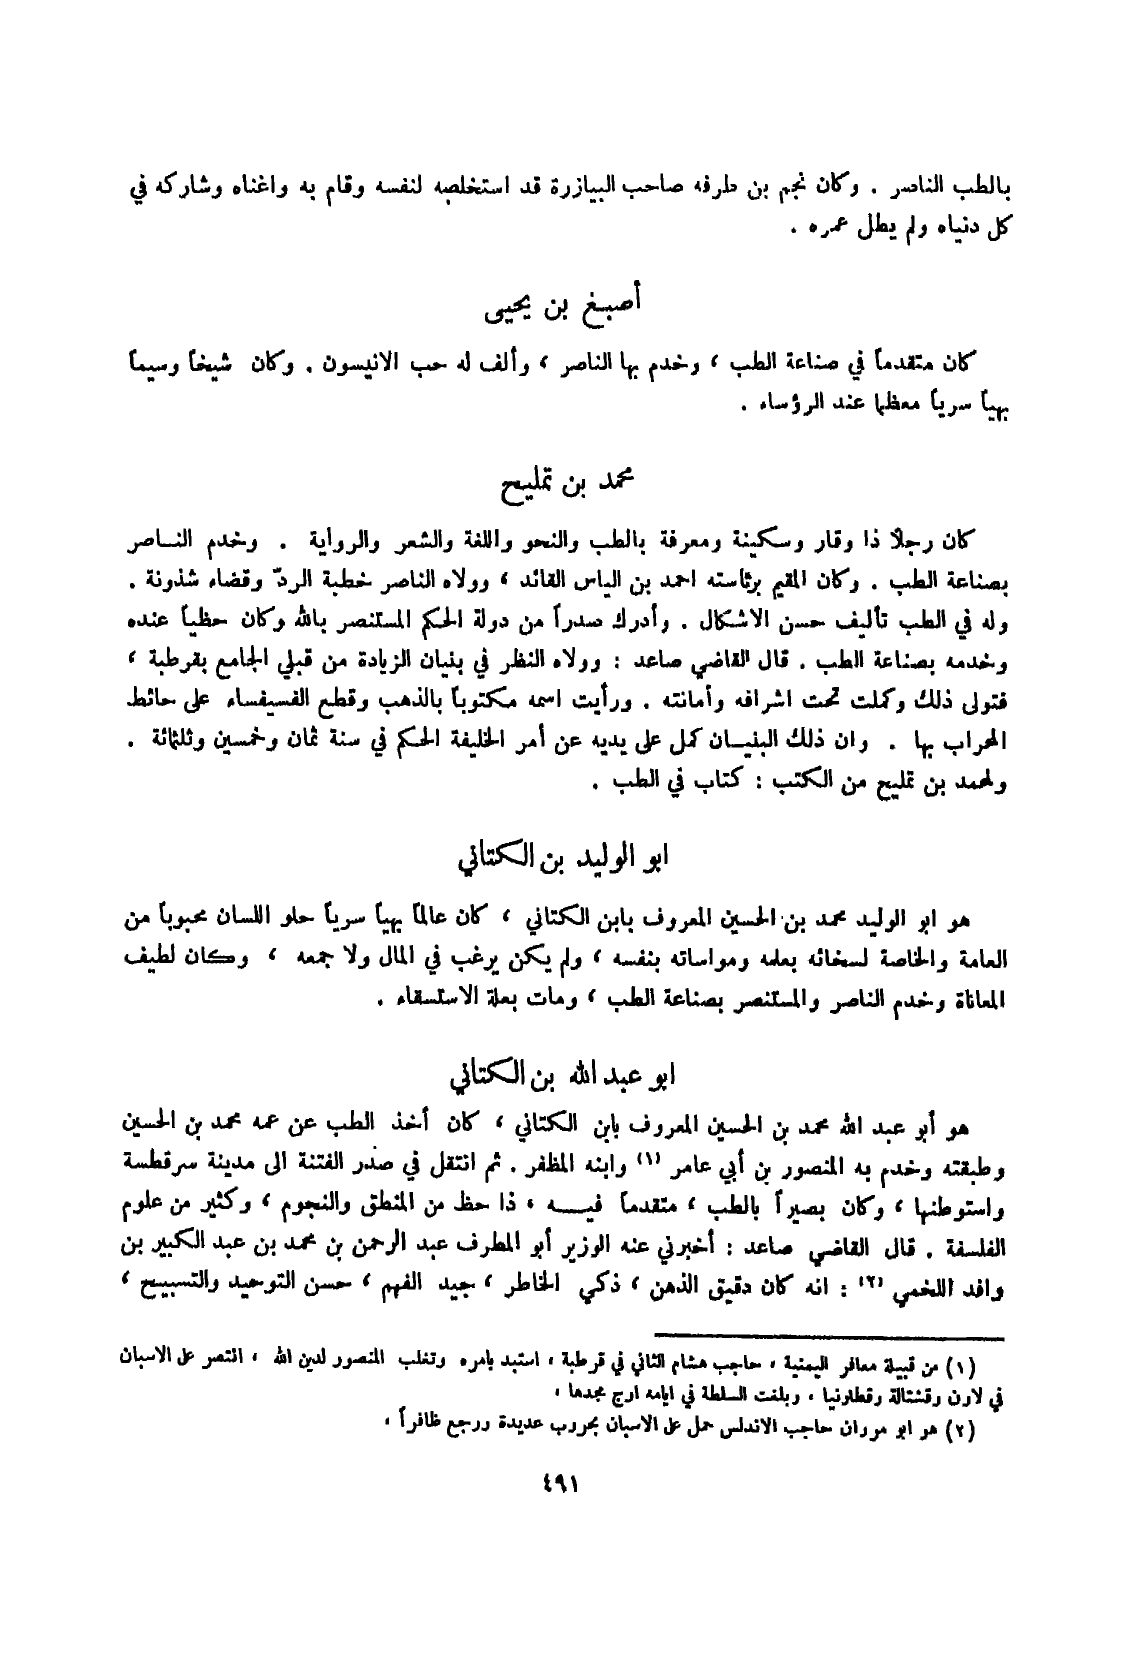 بالطب الناصر . وكان نجم بن طرفه صاحب البيازرة قد استخلصه لنفسه وقام به واغناه وشاركه في
كل دنياه ولم يطل عمره .
أصبغ بن يحيى
كان متقدماً في صناعة الطب ، وخدم بها الناصر ، وألف له حب الانيسون . وكان شيخاً وسيماً
بهياً سرياً معظما عند الرؤساء .
محمد بن تمليح
كان رجلاً ذا وقار وسكينة ومعرفة بالطب والنحو واللغة والشعر والرواية . وخدم النـاصر
بصناعة الطب . وكان المقيم برئاسته احمد بن الياس القائد ، وولاه الناصر خطبة الردّ وقضاء شذونة .
وله في الطب تأليف حسن الاشكال . وأدرك صدراً من دولة الحكم المستنصر بالله وكان حظياً عنده
وخدمه بصناعة الطب . قال القاضي صاعد : وولاه النظر في بنيان الزيادة من قبلي الجامع بقرطبة ،
فتولى ذلك وكملت تحت اشرافه وأمانته . ورأيت اسمه مكتوباً بالذهب وقطع الفسيفساء على حائط
المحراب بها . وان ذلك البنيـان كمل على يديه عن أمر الخليفة الحكم في سنة ثمان وخمسين وثلثمائة .
ولمحمد بن تمليح من الكتب : كتاب في الطب .
ابو الوليد بن الكتاني
هو ابو الوليد محمد بن الحسين المعروف بابن الكتاني ، كان عالماً بهياً سرياً حلو اللسان محبوباً من
العامة والخاصة لسخائه بعلمه ومواساته بنفسه ، ولم يكن يرغب في المال ولا جمعه ، وكان لطيف
المعاناة وخدم الناصر والمستنصر بصناعة الطب ، ومات بعلة الاستسقاء .
ابو عبد الله بن الكتاني
هو أبو عبد الله محمد بن الحسين المعروف بابن الكتاني ، كان أخذ الطب عن عمه محمد بن الحسين
وطبقته وخدم به المنصور بن أبي عامر (١) وابنه المظفر . ثم انتقل في صدر الفتنة الى مدينة سرقطسة
واستوطنها ، وكان بصيراً بالطب ، متقدماً فيـــه ، ذا حظ من المنطق والنجوم ، وكثير من علوم
الفلسفة . قال القاضي صاعد : أخبرني عنه الوزير أبو المطرف عبد الرحمن بن محمد بن عبد الكبير بن
وافد اللخمي (٢) : انه كان دقيق الذهن ، ذكي الخاطر ، جيد الفهم ، حسن التوحيد والتسبيح ،
(١) من قبيلة معافر اليمنية ، حاجب هشام الثاني في قرطبة ، استبد بامره وتغلب المنصور لدين الله ، انتصر على الاسبان
في لارن وقشتالة وقطلونيا ، وبلغت السلطة في ايامه اوج مجدها ،
(٢) هو ابو مروان حاجب الاندلس حمل على الاسبان بحروب عديدة ورجع ظافراً ،
٤٩١